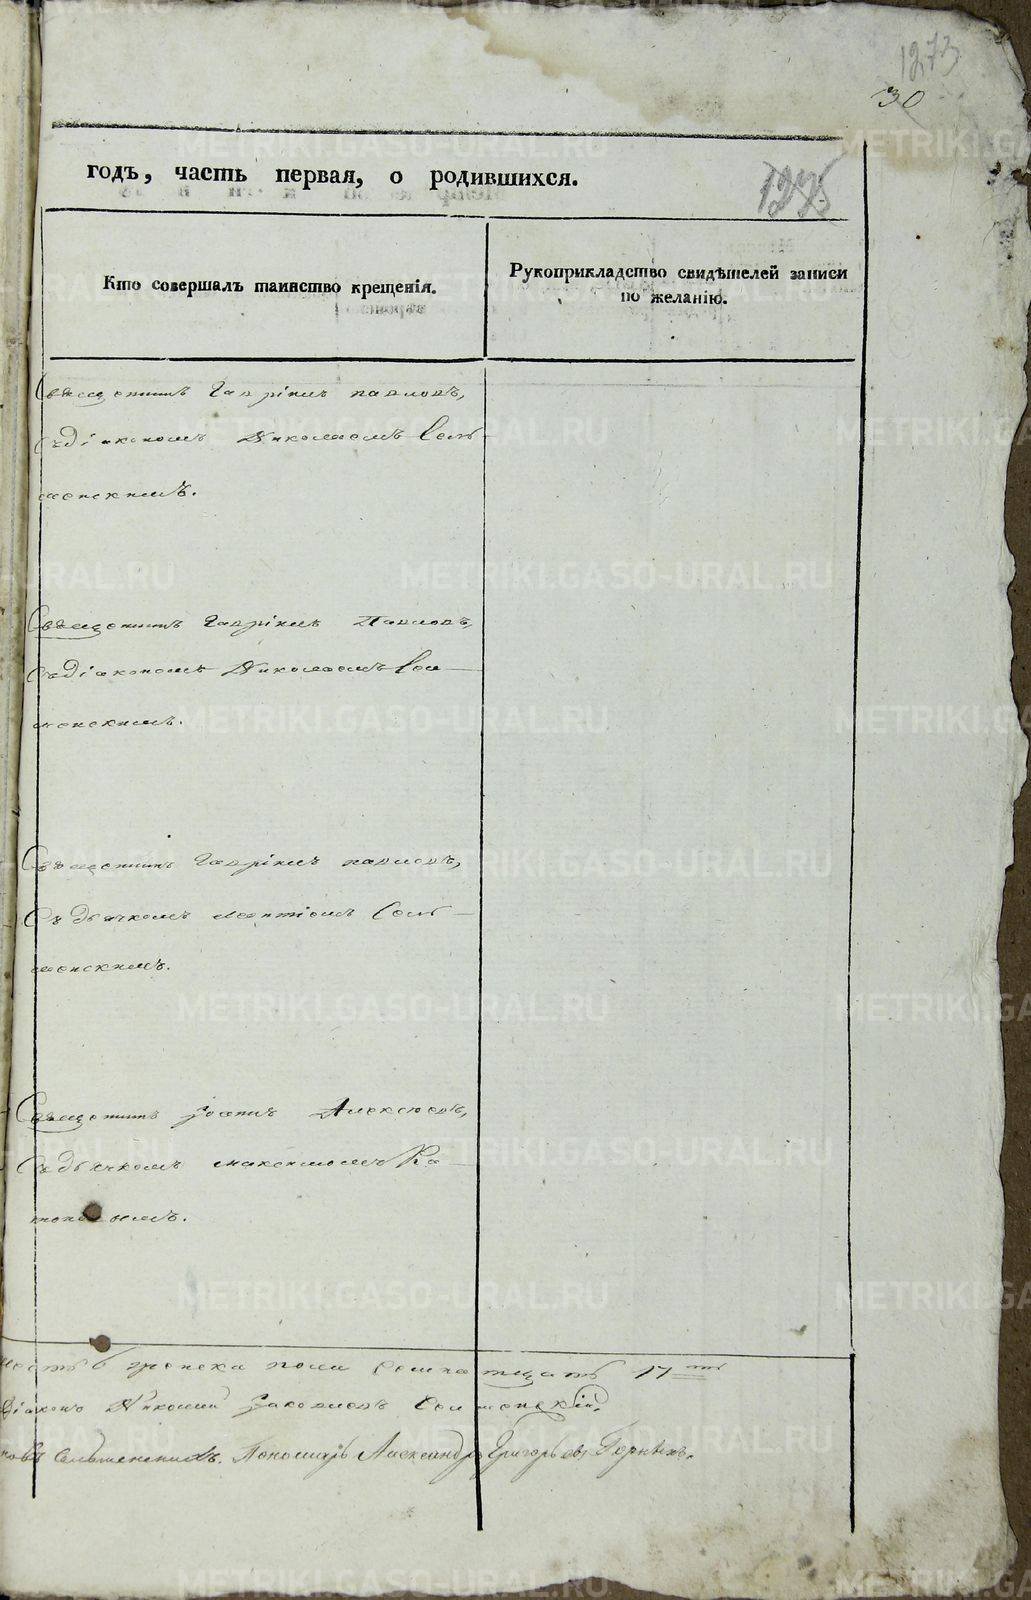 1273
30
годъ, часть первая, о родившихся.
Кто совершалъ таинство крещенія.
Рукоприкладство свидѣтелей записи
по желанію.
Священникъ Гавріилъ Павловъ,
съ діакономъ Николаемъ Сель
менскимъ.
Священникъ Гавріилъ Павловъ,
съ діакономъ Николаемъ Сел
менскимъ.
Священникъ Гавріилъ Павловъ,
съ дьячкомъ Сель
менскимъ.
Священникъ Алексѣевъ,
съ дьячкомъ Максимомъ Ка
женска пола семнатцать 17
Діаконъ Николай Яковлевъ Селменскій,
Сельменскихъ. Пономарь Александръ Григорьевъ Горныхъ.
METRIKI.GASO-URAL.RU